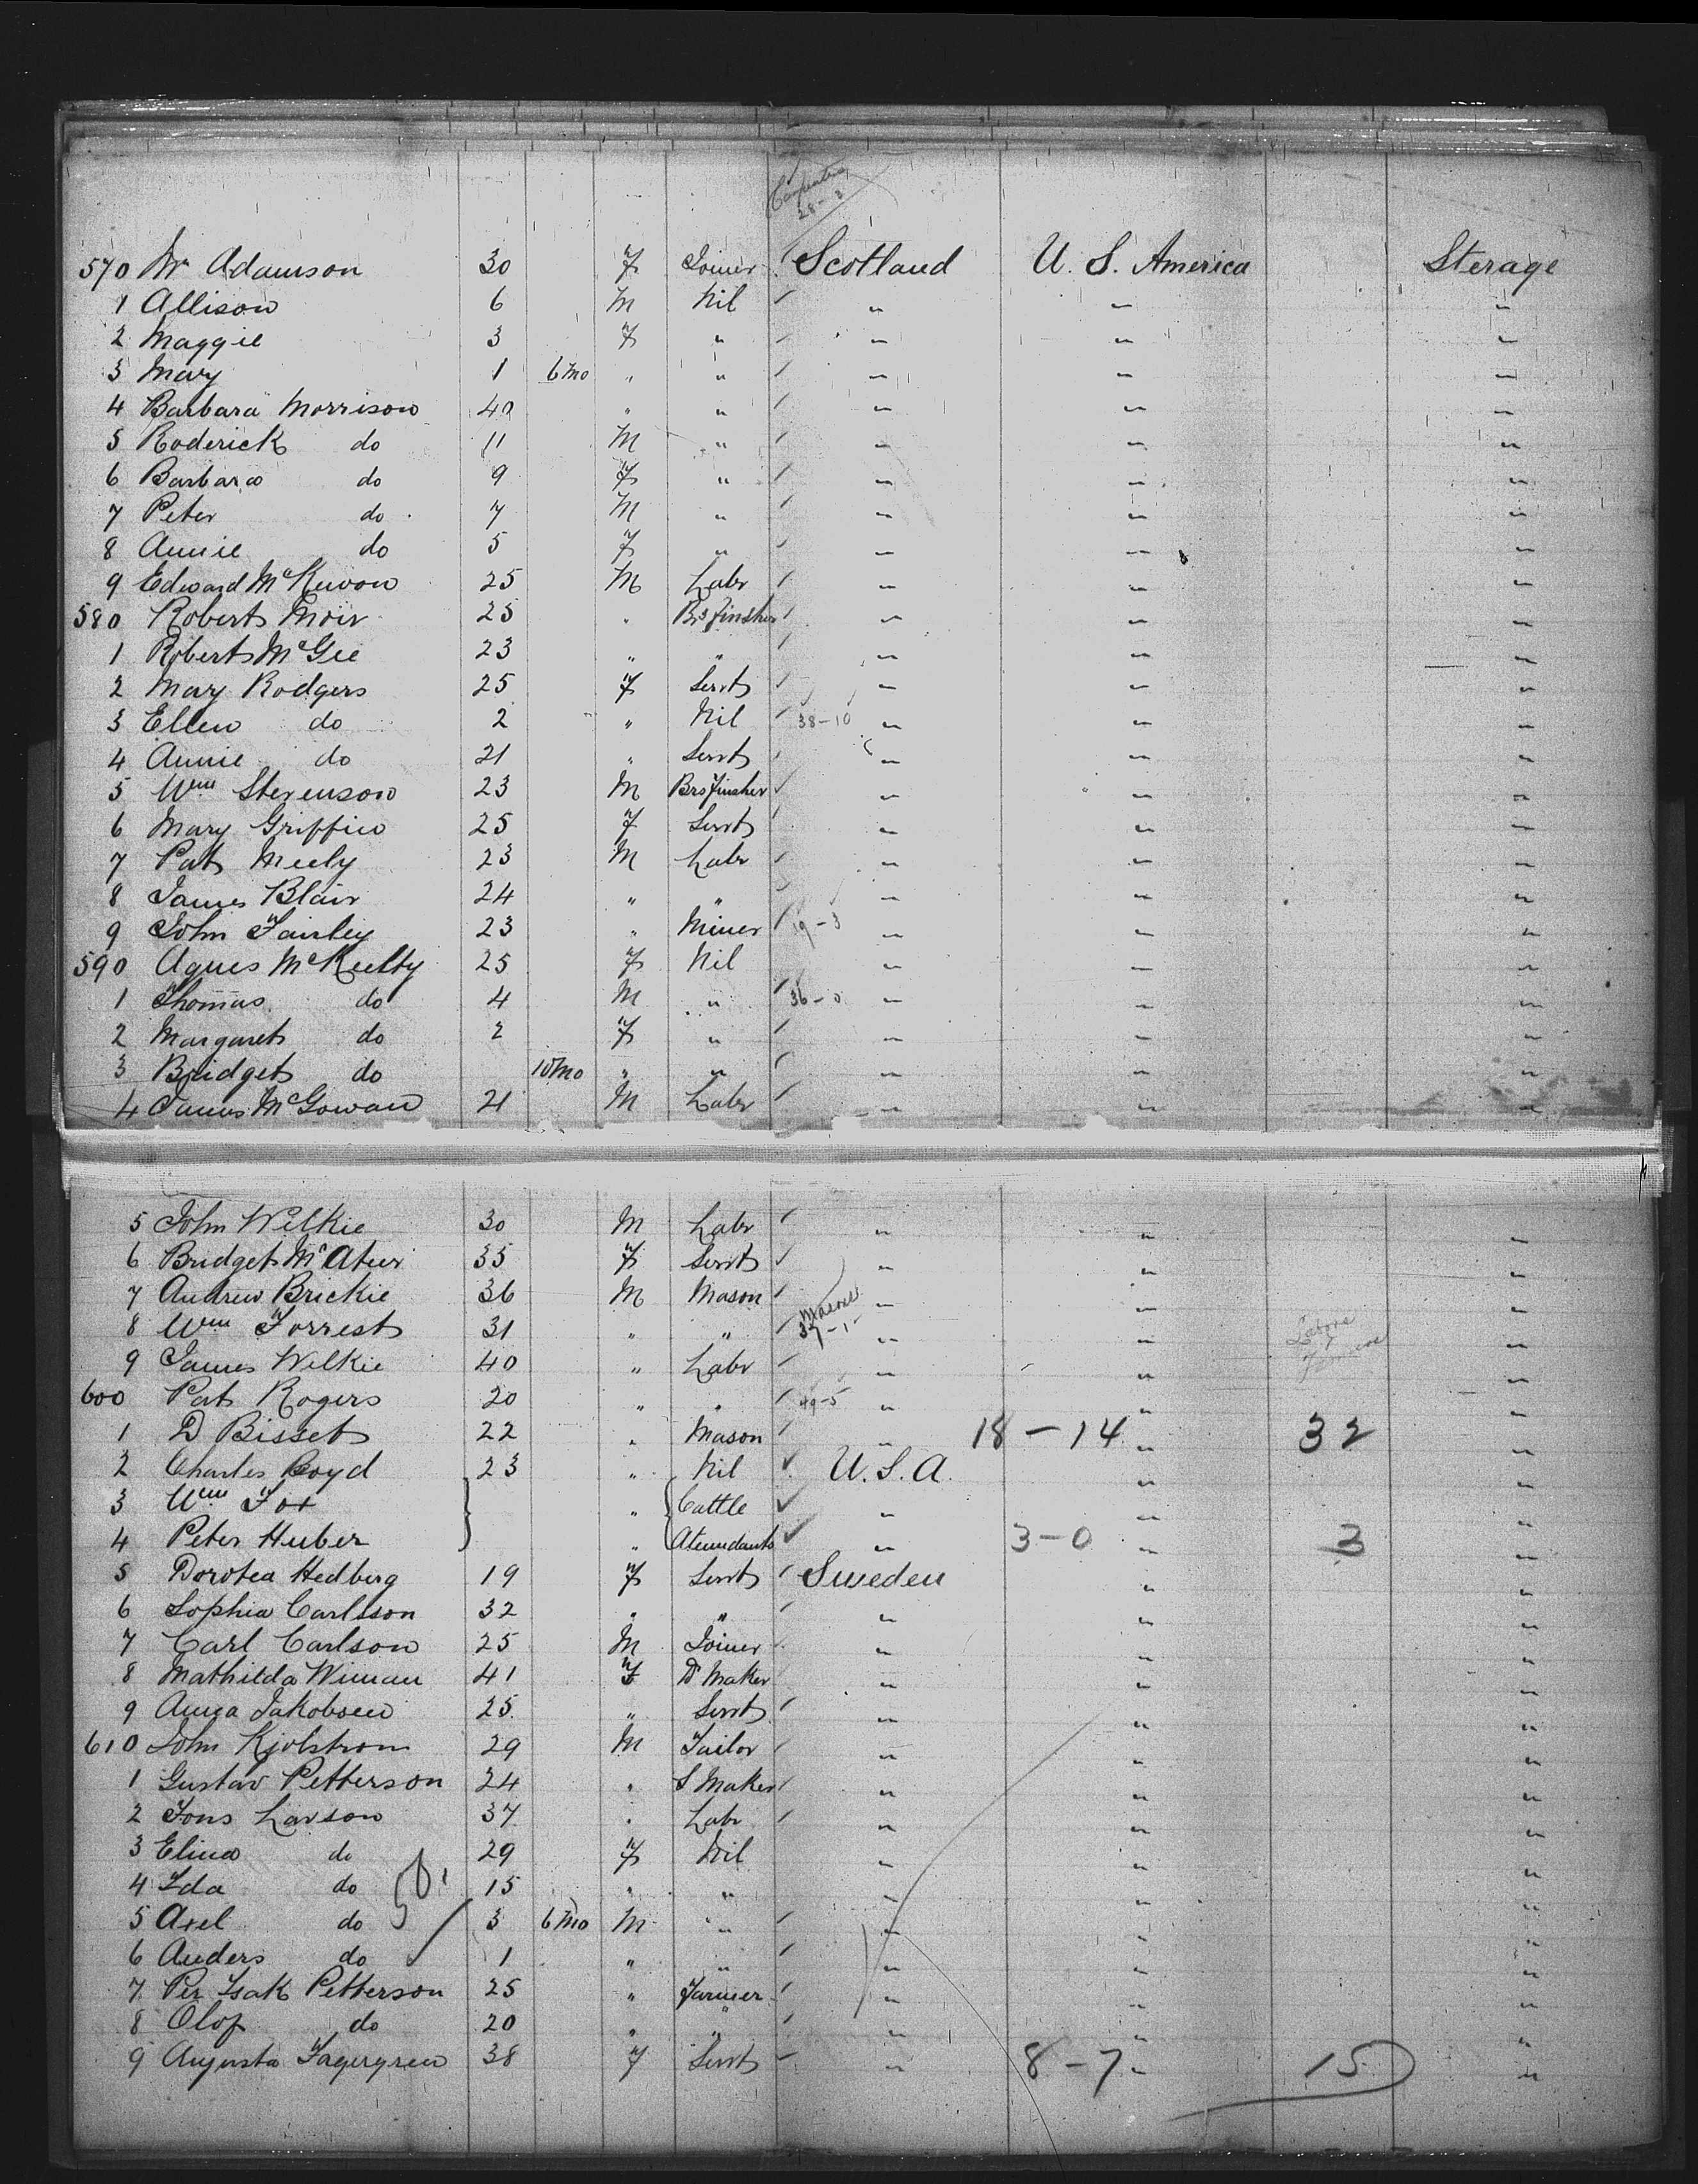 Carpenters
28-3
570 Mr Adamson 30 F Joiner Scotland U. S. America Sterage
1 Allison 6 M Nil " " "
2 Maggie 3 F " " " "
3 Mary 1 6 mo " " " " "
4 Barbara Morrison 40 " " " " "
5 Roderick do 11 M " " " "
6 Barbara do 9 F " " " "
7 Peter do 7 M " " " "
8 Annie do 5 F " " " "
9 Edward McKewon 25 M Labr " " "
580 Robert Moir 25 " Brsfinsher " " "
1 Robert McGee 23 " " " " "
2 Mary Rodgers 25 F Servt " " "
3 Ellen do 2 " Nil 38-10 " " "
4 Annie do 21 " Servt " " "
5 Wm Stevenson 23 M Brsfinsher " " "
6 Mary Griffin 25 F Servt " " "
7 Pat Meely 23 M Labr " " "
8 James Blair 24 " " " " "
9 John Fairley 23 " Miner 19-3 " " "
590 Agnes McKeelty 25 F Nil " " "
1 Thomas do 4 M " 36-0 " " "
2 Margaret do 2 F " " " "
3 Bridget do 10 mo " " " " "
4 James McGowan 21 M Labr " " "
5 John Wilkie 30 M Labr " " "
6 Bridget McAteer 35 F Servt " " "
7 Andrew Brickie 36 M Mason " " "
8 Wm Forrest 31 " " 37-1- " " "
9 James Wilkie 40 " Labr " " "
600 Pat Rogers 20 " " 49-5 " " "
1 D Bisset 22 " Mason " 18-14 " 32 "
2 Charles Boyd 23 " Nil U.S.A. " "
3 Wm Fox " Cattle " " "
4 Peter Huber " Atendants " 3-0 " 3 "
5 Dorotea Hedberg 19 F Servt Sweden " "
6 Sophia Carlsson 32 " " " " "
7 Carl Carlson 25 M Joiner " " "
8 Mathilda Wiman 41 F D Maker " " "
9 Anna Jakobsen 25 " Servt " " "
610 John Kjolstrom 29 M Tailor " " "
1 Gustav Petterson 24 " S Maker " " "
2 Jons Larson 37 " Labr " " "
3 Elina do 29 F Nil " " "
4 Ida do 15 " " " " "
5 Axel do 3 6 mo M " " " "
6 Anders do 1 " " " " "
7 Per Isak Petterson 25 " Farmer " " "
8 Olof do 20 " " " " "
9 Augusta Fagergren 38 F Servt " 8-7 " 15 "